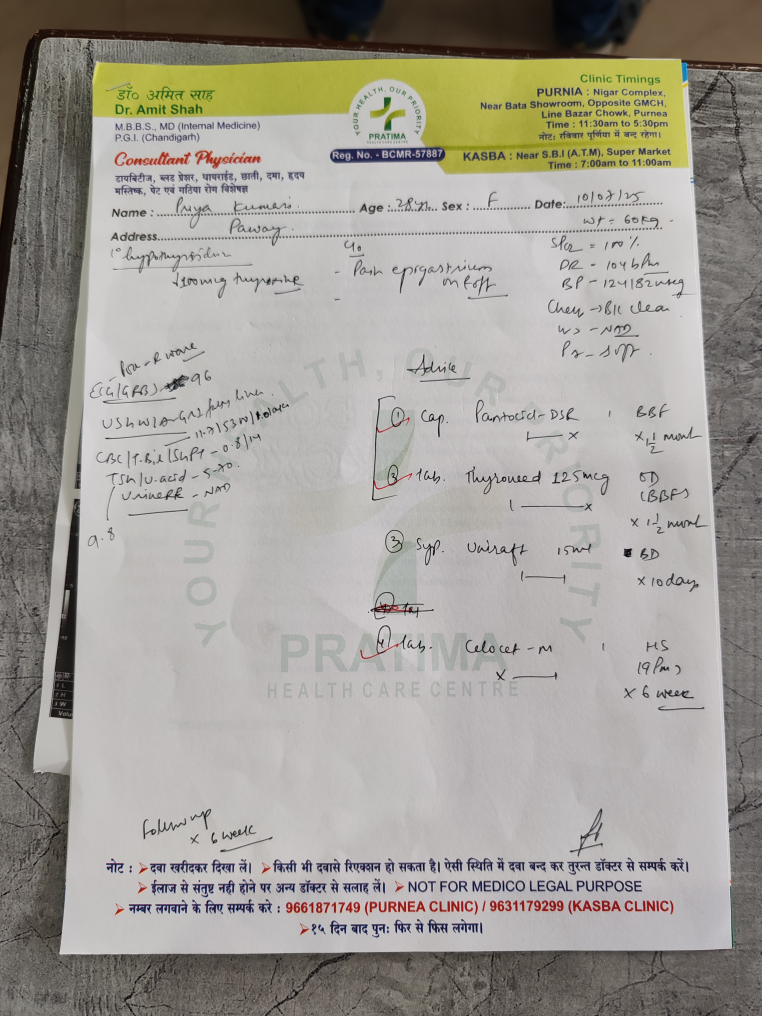 डॉ० अमित साह
Dr. Amit Shah
M.B.B.S., MD (Internal Medicine)
P.G.I. (Chandigarh)
Consultant Physician
डायबिटीज, ब्लड प्रेशर, थायराईड, छाती, दमा, हृदय
मस्तिष्क, पेट एवं गठिया रोग विशेषज्ञ
YOUR HEALTH, OUR PRIORITY
PRATIMA
HEALTH CARE CENTRE
Reg. No. - BCMR-57887
Clinic Timings
PURNIA : Nigar Complex,
Near Bata Showroom, Opposite GMCH,
Line Bazar Chowk, Purnea
Time : 11:30am to 5:30pm
नोट: रविवार पूर्णिया में बन्द रहेगा।
KASBA : Near S.B.I (A.T.M), Super Market
Time : 7:00am to 11:00am
Name : Priya Kumari Age : 28 yr Sex : F Date: 10/07/25
Wt = 60kg
Address
1° hypothyroidism
100mcg thyroxine
c/o
- Pain epigastrium
on & off
SPO2 = 100%
PR - 104 bpm
BP - 124/82 mmHg
Chest → B/L clear
NAD
P/A - Soft
ECG/GRBS 96
USG W/A
CBC/T.Bil/SGPT - 0.8/14
TSH/U.acid - 5.70
Urine RE - NAD
9.8
Advice
① Cap. Pantocid-DSR 1 BBF
x 1½ month
Tab. Thyroneed 125mcg OD
(BBF)
x 1½ month
③ Syp. Uniraft 15ml BD
x 10 days
④ Tab. 1 HS
(9 Pm)
x 6 week
YOUR HEALTH, OUR PRIORITY
PRATIMA
HEALTH CARE CENTRE
Followup
x 6 week
नोट : ➤दवा खरीदकर दिखा लें। ➤किसी भी दवासे रिएक्शन हो सकता है। ऐसी स्थिति में दवा बन्द कर तुरन्त डॉक्टर से सम्पर्क करें।
➤ईलाज से संतुष्ट नही होने पर अन्य डॉक्टर से सलाह लें। ➤ NOT FOR MEDICO LEGAL PURPOSE
➤ नम्बर लगवाने के लिए सम्पर्क करे : 9661871749 (PURNEA CLINIC) / 9631179299 (KASBA CLINIC)
➤१५ दिन बाद पुनः फिर से फिस लगेगा।